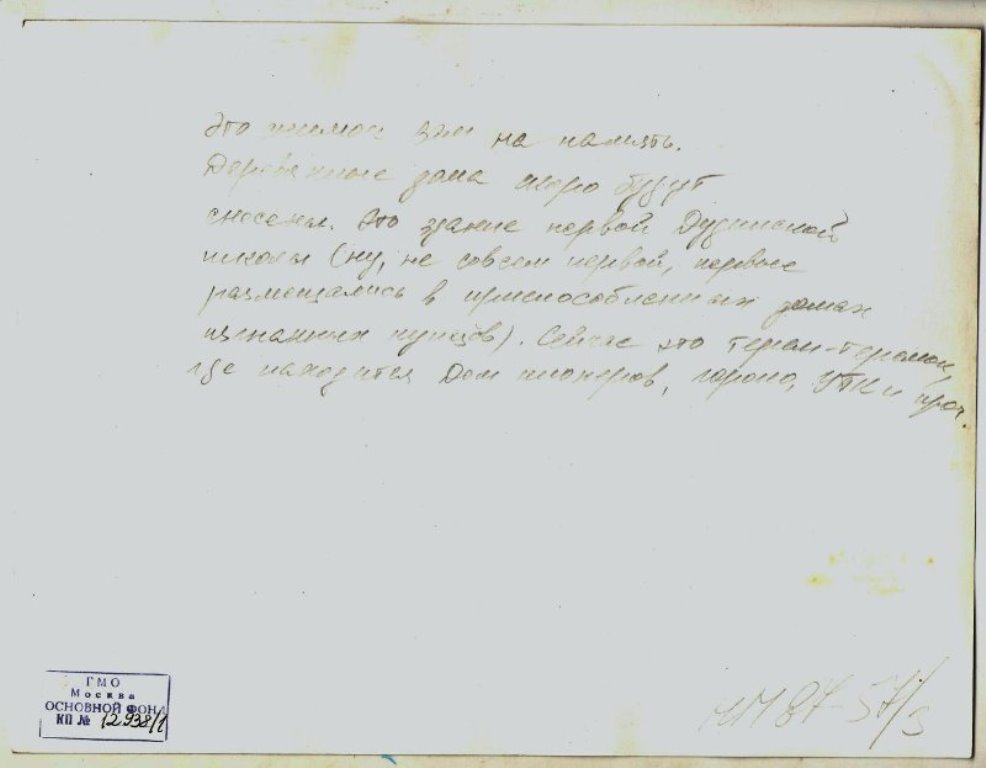 Это Вам на память.
Деревянные дома скоро будут
снесены. Это здание первой Дудинской
школы (ну, не совсем первой, первые
размещались в приспособленных домах
изгнанных купцов). Сейчас это терем-теремок,
где находится Дом пионеров, гороно, УПК и проч.
ГМО
Москва
ОСНОВНОЙ ФОНД
КП № 12938/1
87-57/3